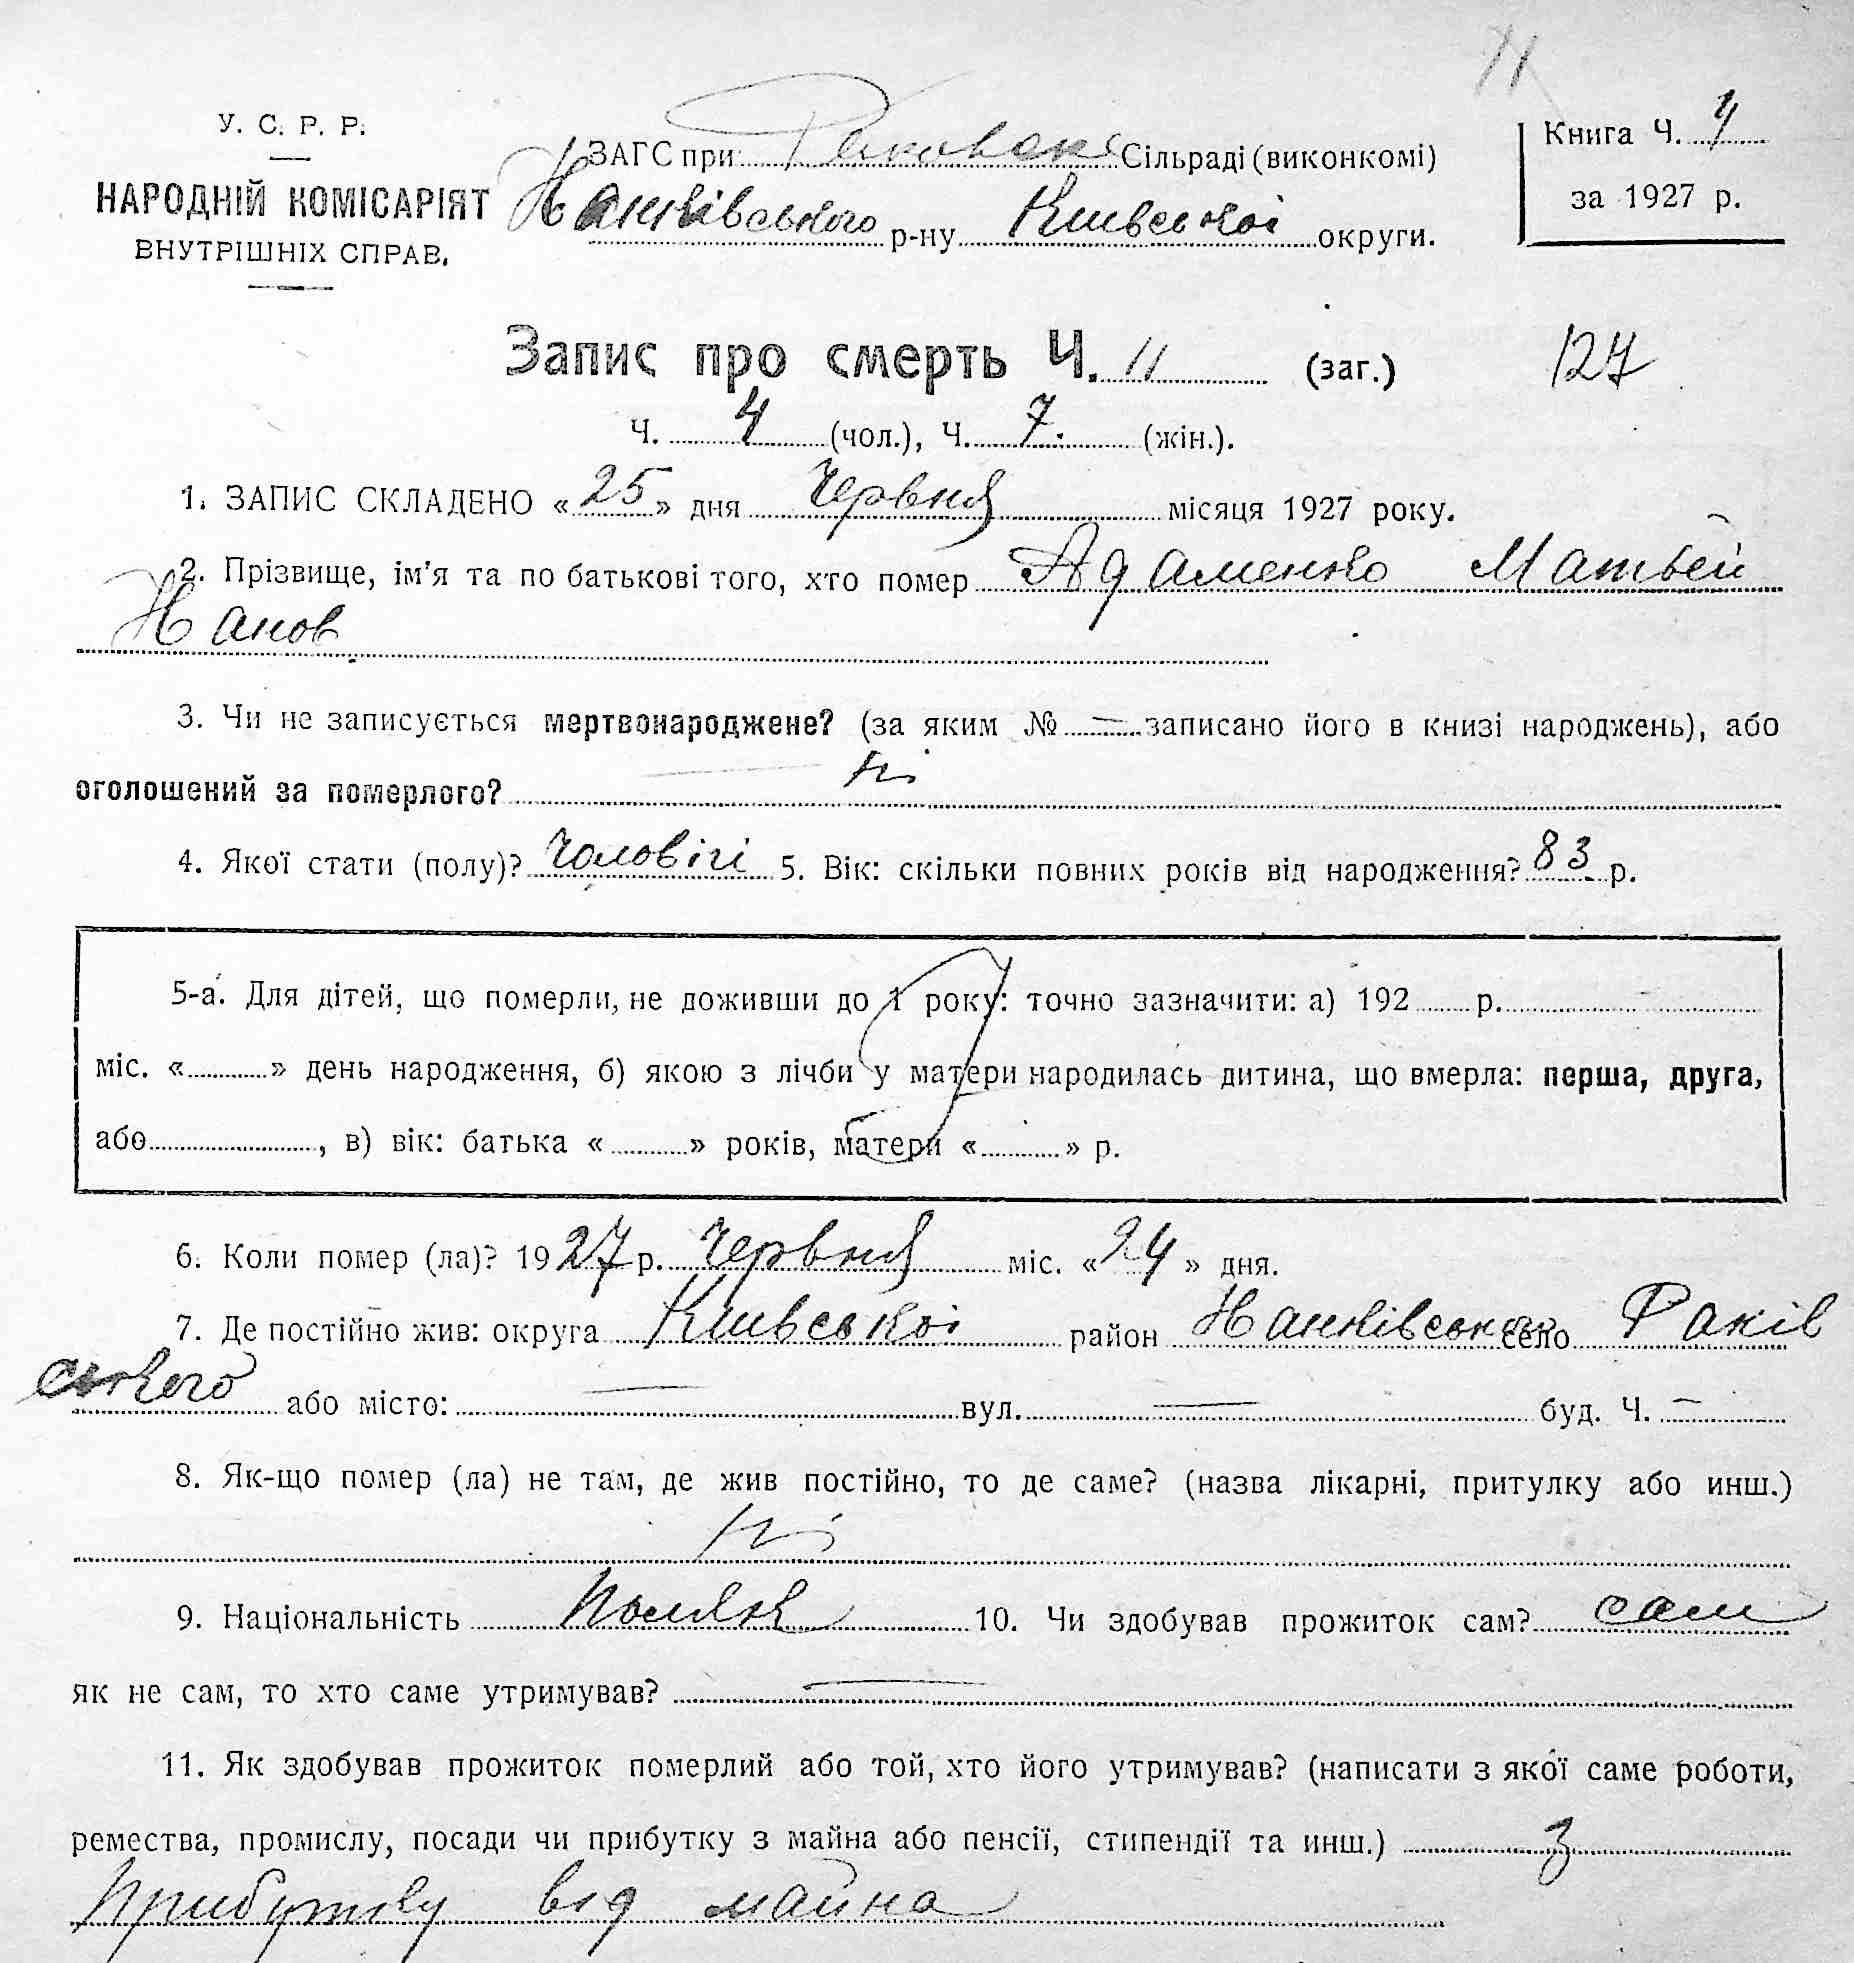 11
У. С. Р. Р.
НАРОДНІЙ КОМІСАРІЯТ
ВНУТРІШНІХ СПРАВ.
ЗАГС при Раковск Сільраді (виконкомі)
р-ну Київської округи.
Книга Ч. 4
за 1927 р.
Запис про смерть Ч. 11 (заг.)
127
Ч. 4 (чол.), Ч. 7. (жін.).
1. ЗАПИС СКЛАДЕНО «25» дня Червня місяця 1927 року.
2. Прізвище, ім'я та по батькові того, хто помер Адаменко Матвей
3. Чи не записується мертвонароджене? (за яким № — записано його в книзі народжень), або
оголошений за померлого? ні
4. Якої стати (полу)? Чоловічі 5. Вік: скільки повних років від народження? 83 р.
5-а. Для дітей, що померли, не доживши до 1 року: точно зазначити: а) 192 р.
міс. « » день народження, б) якою з лічби у матери народилась дитина, що вмерла: перша, друга,
або , в) вік: батька « » років, матери « » р.
6. Коли помер (ла)? 1927 р. Червня міс. «24» дня.
7. Де постійно жив: округа Київської район село Раків
ського або місто: — вул. — буд. Ч. —
8. Як-що помер (ла) не там, де жив постійно, то де саме? (назва лікарні, притулку або инш.)
ні
9. Національність Поляк 10. Чи здобував прожиток сам? сам
як не сам, то хто саме утримував? —
11. Як здобував прожиток померлий або той, хто його утримував? (написати з якої саме роботи,
ремества, промислу, посади чи прибутку з майна або пенсії, стипендії та инш.) З
прибутку від майна